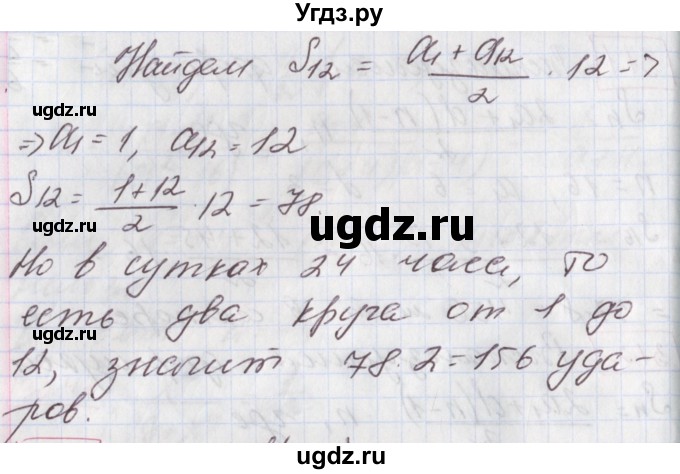 Угдз.ру
Найдем S₁₂ = (a₁ + a₁₂)/2 · 12 =>
ugdz.ru
=> a₁ = 1, a₁₂ = 12
S₁₂ = (1+12)/2 · 12 = 78.
ugdz.ru ugdz.ru
Но в сутках 24 часа, то
есть два круга от 1 до
12, значит 78·2=156 уда-
ugdz.ru ugdz.ru
ров.
ugdz.ru